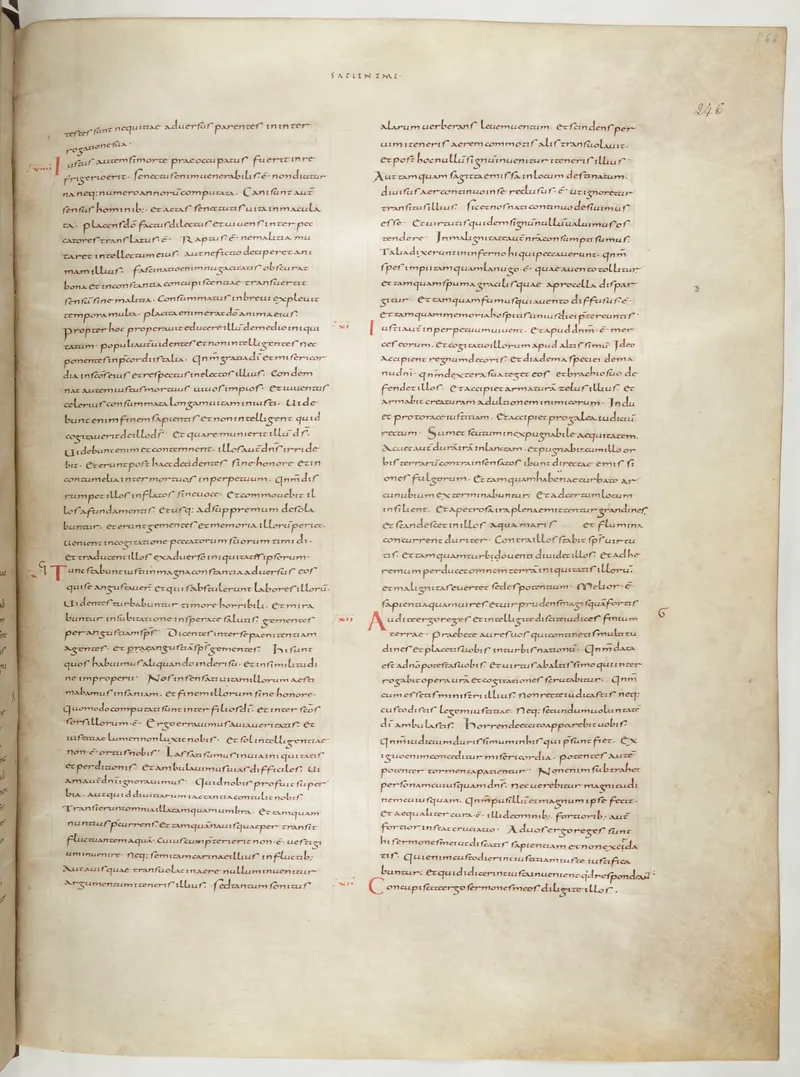 SAPIENTIAE
246
testes sunt nequitiae aduersus parentes in inter
rogatione sua·
Iustus autem si morte praeoccupatus fuerit in re
frigerio erit· senectus enim uenerabilis ·ē· non diutur
na neq; numero annorū computata· Cani sunt aut̄
sensus hominib; et aetas senectutis uita inmacula
ta· placens dō factus dilectus et uiuens inter pec
catores translatus ·ē· Raptus ·ē· ne malitia mu
taret intellectum eius· aut ne fictio deciperet ani
mam illius· fascinatio enim nugacitatis obscurat
bona et inconstantia concupiscentiae transuertit
sensū sine malitia· Consummatus in breui expleuit
tempora multa· placita enim erat dō anima eius·
propter hoc properauit educere illū de medio iniqui
tatum· populi aut̄ uidentes et non intellegentes nec
ponentes in p̄cordiis talia· Qnm̄ gratia dī et misericor
dia in scōs eius et respectus in electos illius· Condem
nat autem iustus mortuus uiuos impios· et iuuentus
celerius consummata longam uitam iniusti· Uide
bunt enim finem sapientis et non intellegent quid
cogitauerit de illo ds̄· et quare munierit illū dn̄s·
Uidebunt enim et contemnent· illos aut̄ dn̄s irride
bit· et erunt post haec decidentes sine honore et in
contumelia inter mortuos in perpetuum· Qnm̄ dis
rumpet illos inflatos sine uoce· et commouebit il
los a fundamentis et usq; ad suppremum desola
buntur· et erunt gementes et memoria illorū periet·
Uenient in cogitatione peccatorum suorum timidi·
et traducent illos ex aduerso iniquitates ipsorum·
Tunc stabunt iusti in magna constantia aduersus eos
qui se angustiauer̄ et qui abstulerunt labores illorū·
Uidentes turbabuntur timore horribili· et mira
buntur in subitatione insperatae salutis gementes
per angustiam sp̄s· Dicentes inter se paenitentiam
agentes· et prae angustia sp̄s gementes· Hi sunt
quos habuimus aliquando in derisū· et in similitudi
ne improperii· Nos insensati uitam illorum aesti
mabamus insaniam· et finem illorum sine honore·
Quomodo computati sunt inter filios dī· et inter scōs
sors illorum ·ē· Ergo errauimus a uia ueritatis· et
iustitiae lumen non luxit nobis· et sol intellegentiae
non ·ē· ortus nobis· Lassati sumus in uia iniquitatis
et perditionis· et ambulauimus uias difficiles· Ui
am aut̄ dn̄i ignorauimus· Quid nobis profuit super
bia· aut quid diuitiarum iactantia contulit nobis·
Transierunt omnia illa tamquam umbra· et tamquam
nuntius p̄currens· et tamquā nauis quae per transit
fluctuantem aquā· Cuius cum p̄terierit non ·ē· uestigi
um inuenire· neq; semitam carinae illius in fluctib;
Aut auis quae transuolat in aere nullum inuenitur
argumentum itineris illius· sed tantum sonitus
alarum uerberans leuem uentum· et scindens per
uim itineris aerem commotis alis transuolauit·
et post hoc nullū signū inuenitur itineris illius·
Aut tamquam sagitta emissa in locum destinatum·
diuisus aer continuo in se reclusus ·ē· ut ignoretur
transitus illius· sic et nos nati continuo desiuimus
esse· et uirtutis quidem signū nullū ualuimus os
tendere· In malignitate aut̄ nrā consumpti sumus·
Talia dixerunt in inferno hi qui peccauerunt· Qnm̄
spes impii tamquam lanugo ·ē· quae a uento tollitur
et tamquam spuma gracilis quae a procella disper
gitur· et tamquam fumus qui a uento diffusus ·ē·
et tamquam memoria hospitis unius diei p̄tereuntis·
Iusti aut̄ in perpetuum uiuent· et apud dnm̄ ·ē· mer
ces eorum· et cogitatio illorum apud altissimū· Ideo
accipient regnum decoris· et diadema speciei de ma
nu dn̄i· Qnm̄ dextera sua teget eos· et brachio suo de
fendet illos· et accipiet armaturā zelus illius· et
armabit creaturam ad ultionem inimicorum· Indu
et pro torace iustitiam· et accipiet pro galea iudiciū
rectum· Sumet scutum inexpugnabile aequitatem·
Acuet aut̄ durā irā in lanceam· et pugnabit cum illo or
bis terrarū contra insensatos· ibunt directae emissi
ones fulgorum· et tamquam habenae turbato ar
cu nubium exterminabuntur· et ad certum locum
insilient· et a petrosa ira plenae mittentur grandines
et scandescet in illos aqua maris et flumina
concurrent duriter· Contra illos stabit sp̄s uirtu
tis· et tamquam turbido uenti diuidet illos· et ad he
remum perducet omnem terrā iniquitatis illorū·
et malignitas euertet sedes potentium· Melior ·ē·
sapientia quam uires et uir prudens magis quā fortis
Audite ergo reges et intellegite discite iudices finium
terrae· praebete aures uos qui continetis multitu
dines et placetis uobis in turbis nationū· Qnm̄ data
est a dn̄o potestas uobis et uirtus ab altissimo qui inter
rogabit opera urā et cogitationes scrutabitur· Qnm̄
cum essetis ministri illius non recte iudicastis neq;
custodistis legem iustitiae· Neq; secundum uoluntatē
dī ambulastis· Horrende et cito apparebit uobis·
Qnm̄ iudicium durissimum in his qui p̄sunt fiet· Ex
iguo enim conceditur misericordia· potentes autē
potenter tormenta patientur· Non enim subtrahet
personam cuiusquam dn̄s· nec uerebitur magnitudi
nem cuiusquam· Qnm̄ pusillū et magnum ipse fecit·
et aequaliter cura ·ē· illi de omnib; fortiorib; aut̄
fortior instat cruciatio· Ad uos ergo reges sunt
hi sermones mei ut discatis sapientiam et non excida
tis· Qui enim custodierint iustitiam iuste iustifica
buntur· et qui didicerint iusta inuenient qd̄ respondeant·
Concupiscite ergo sermones meos diligite illos·